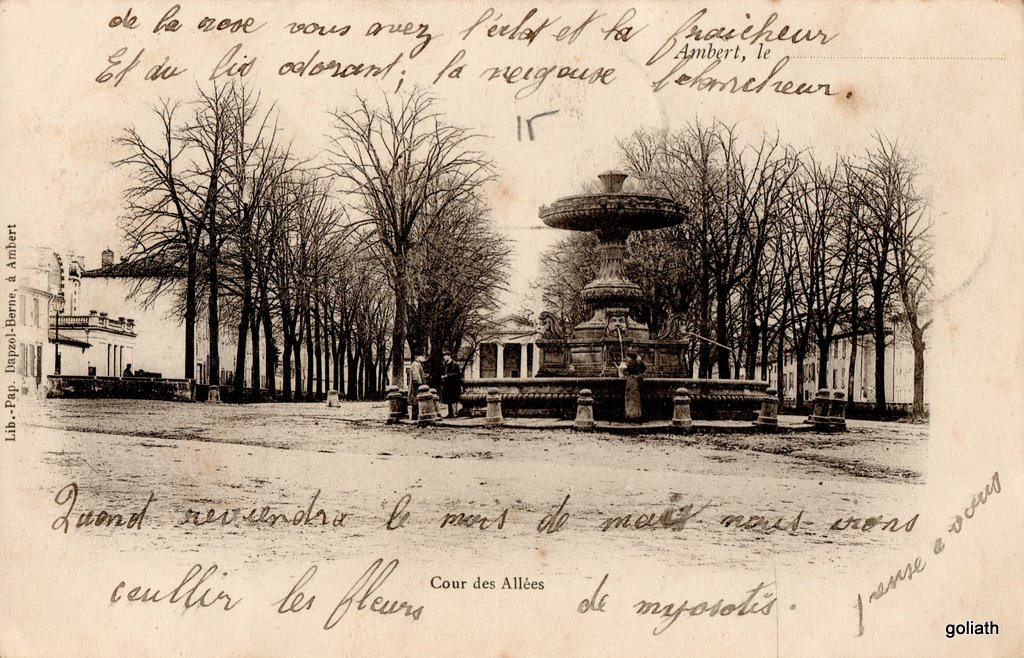 de la rose vous avez l'éclat et la fraicheur
Ambert, le
Et du lis odorant; la neigeuse blancheur.
15
Lib.-Pap. Dapzol-Berne, à Ambert
Quand reviendra le mois de mai nous irons
ceullir les fleurs de myosotis.
Cour des Allées
pense a vous
goliath